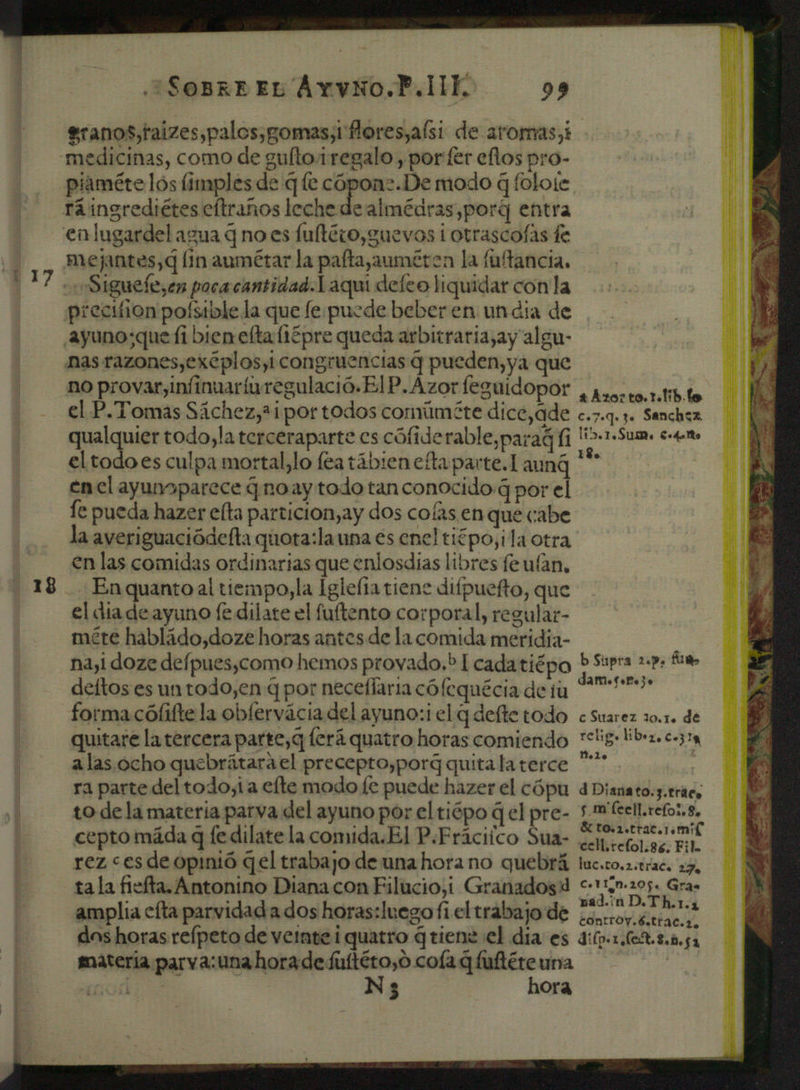 SOBRE EL AYVNO.P.III. 99
granos,raizes,palos,gomas,i flores,aſsi de aromas,i
medicinas, como de guſto i regalo, por ſer eſtos pro-
piamẽte los ſimples de q̃ ſe cõpone.De modo q̃ ſolo ſe
rá ingrediẽtes eſtraños leche de almẽdras,porq̃ entra
en lugar del agua q̃ no es ſuſtẽto,guevos i otras coſas ſe
mejantes,q̃ ſin aumẽtar la paſta,aumẽten la ſuſtancia.
17 Sigueſe,en poca cantidad.I aqui deſeo liquidar con la
preciſion poſsible la que ſe puede beber en un dia de
ayuno;que ſi bien eſta ſiẽpre queda arbitraria,ay algu-
nas razones,exẽplos,i congruencias q̃ pueden,ya que
no provar,inſinuar ſu regulaciõ.El P.Azor ſeguido por
el P.Tomas Sãchez,ª i por todos comũmẽte dice,q̃ de
qualquier todo,la tercera parte es cõſiderable,para q̃ ſi
el todo es culpa mortal,lo ſea tãbien eſta parte.I aunq̃
en el ayuno parece q̃ no ay todo tan conocido q̃ por el
ſe pueda hazer eſta particion,ay dos coſas en que cabe
la averiguaciõ deſta quota:la una es en el tiẽpo,i la otra
en las comidas ordinarias que en los dias libres ſe uſan.
18 En quanto al tiempo,la Igleſia tiene diſpueſto, que
el dia de ayuno ſe dilate el ſuſtento corporal, regular-
mẽte hablãdo,doze horas antes de la comida meridia-
na,i doze deſpues,como hemos provado.ᵇ I cada tiẽpo
deſtos es un todo,en q̃ por neceſſaria cõſequẽcia de ſu
forma cõſiſte la obſervãcia del ayuno:i el q̃ deſte todo
quitare la tercera parte,q̃ ſerá quatro horas comiendo
a las ocho quebrãtará el precepto,porq̃ quita la terce
ra parte del todo,i a eſte modo ſe puede hazer el cõpu
to de la materia parva del ayuno por el tiẽpo q̃ el pre-
cepto mãda q̃ ſe dilate la comida.El P.Frãciſco Sua-
rez ᶜ es de opiniõ q̃ el trabajo de una hora no quebrã
ta la fieſta.Antonino Diana con Filucio,i Granados ᵈ
amplia eſta parvidad a dos horas:luego ſi el trabajo de
dos horas reſpeto de veinte i quatro q̃ tiene el dia es
materia parva:una hora de ſuſtẽto,ò coſa q̃ ſuſtẽte una
N 3 hora
a Azor to.1.lib.
c.7.q.3. Sanchez
lib.1.Sum. c.4.n.
18.
b Supra 2.p. fun-
dam.
c Suarez to.1. de
relig. lib.2. c.31
n.2.
d Diana to.3.trac.
5 miſcell.reſol.8.
& to.2.trac.1.miſ
cell.reſol.86. Fil-
luc.to.2.trac. 27.
c.11.n.205. Gra-
nad.in D.Th.1.2
controv.6.trac.2.
diſp.1.ſect.8.n.52